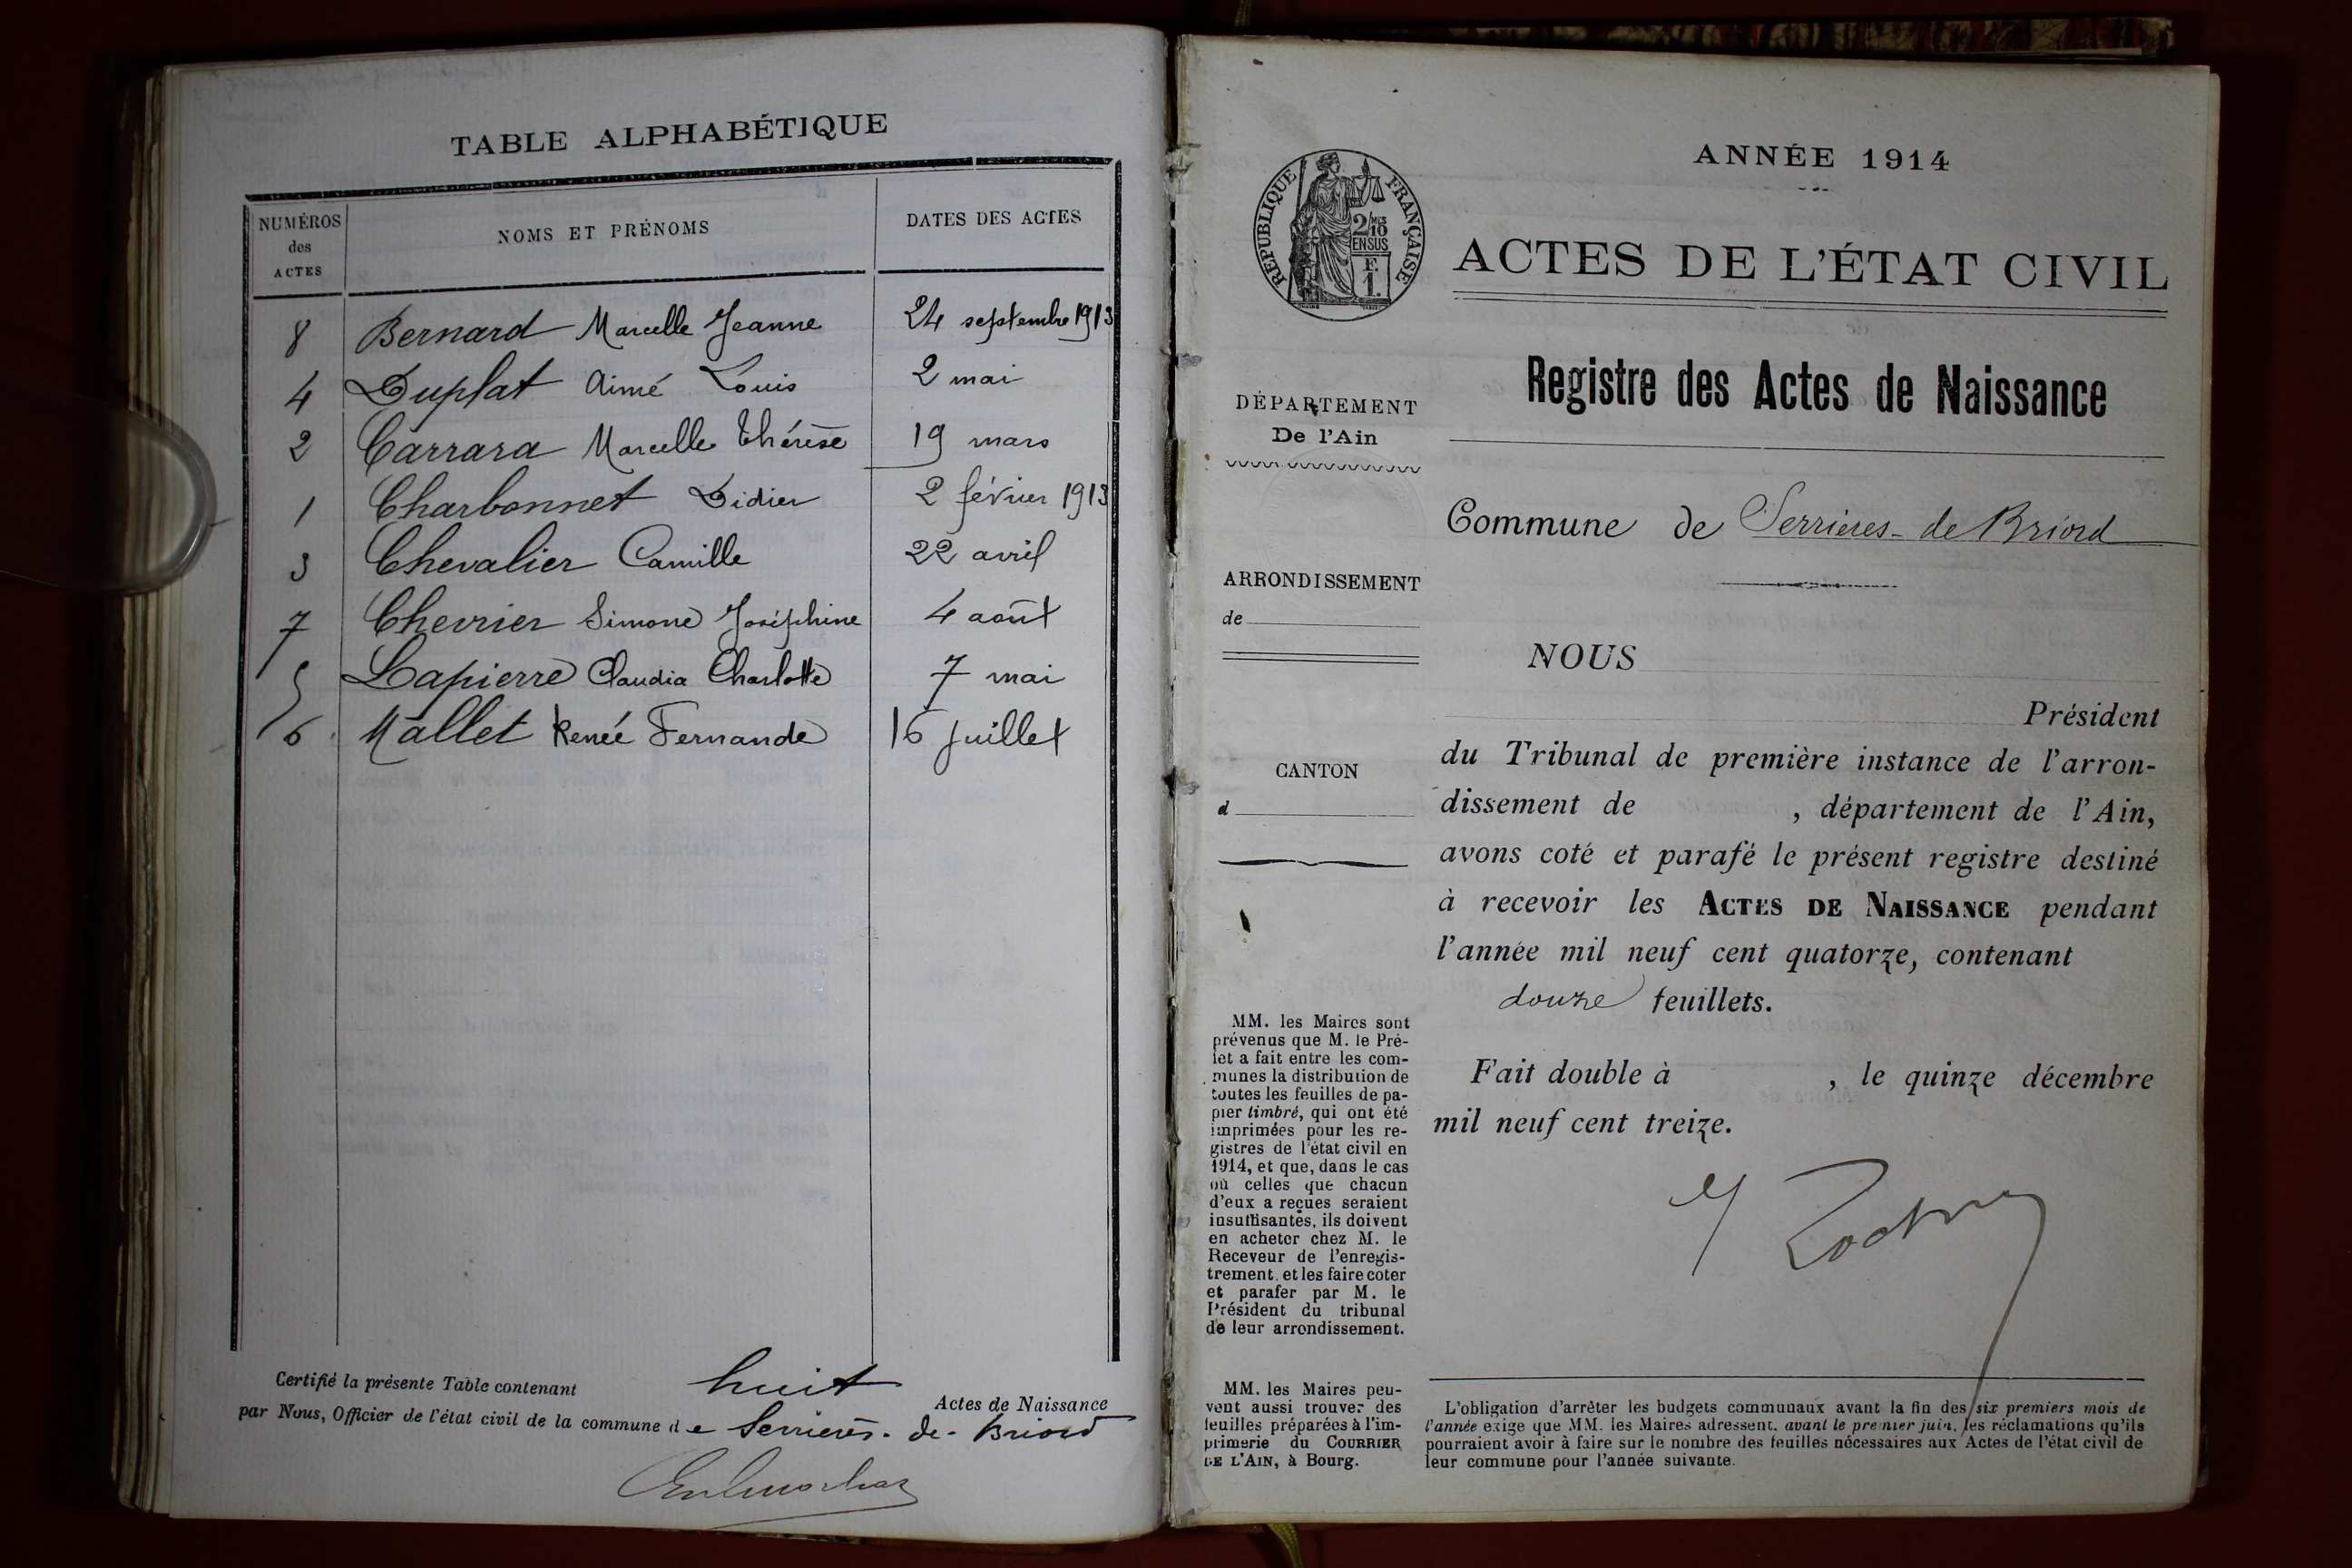 TABLE ALPHABÉTIQUE
NUMÉROS des ACTES
NOMS ET PRÉNOMS
DATES DES ACTES
8 Bernard Marcelle Jeanne 24 septembre 1913
4 Duplat Aimé Louis 2 mai
2 Carrara Marcelle Thérèse 19 mars
1 Charbonnet Didier 2 février 1913
3 Chevalier Camille 22 avril
7 Chevrier Simone Joséphine 4 août
5 Lapierre Claudia Charlotte 7 mai
6 Mallet Renée Fernande 16 Juillet
Certifié la présente Table contenant huit Actes de Naissance
par Nous, Officier de l'état civil de la commune de Serrières-de-Briord
ANNÉE 1914
RÉPUBLIQUE FRANÇAISE
2/10 MES
EN SUS
F.
1.
ACTES DE L'ÉTAT CIVIL
Registre des Actes de Naissance
DÉPARTEMENT
De l'Ain
Commune de Serrieres-de Briord
ARRONDISSEMENT
de
CANTON
d
NOUS
Président
du Tribunal de première instance de l'arron-
dissement de , département de l'Ain,
avons coté et parafé le présent registre destiné
à recevoir les ACTES DE NAISSANCE pendant
l'année mil neuf cent quatorze, contenant
douze feuillets.
Fait double à , le quinze décembre
mil neuf cent treize.
MM. les Maires sont
prévenus que M. le Pré-
fet a fait entre les com-
munes la distribution de
toutes les feuilles de pa-
pier timbré, qui ont été
imprimées pour les re-
gistres de l'état civil en
1914, et que, dans le cas
où celles que chacun
d'eux a reçues seraient
insuffisantes, ils doivent
en acheter chez M. le
Receveur de l'enregis-
trement, et les faire coter
et parafer par M. le
Président du tribunal
de leur arrondissement.
MM. les Maires peu-
vent aussi trouver des
feuilles préparées à l'im-
primerie du COURRIER
DE L'AIN, à Bourg.
L'obligation d'arrêter les budgets communaux avant la fin des six premiers mois de
l'année exige que MM. les Maires adressent, avant le premier juin, les réclamations qu'ils
pourraient avoir à faire sur le nombre des feuilles nécessaires aux Actes de l'état civil de
leur commune pour l'année suivante.